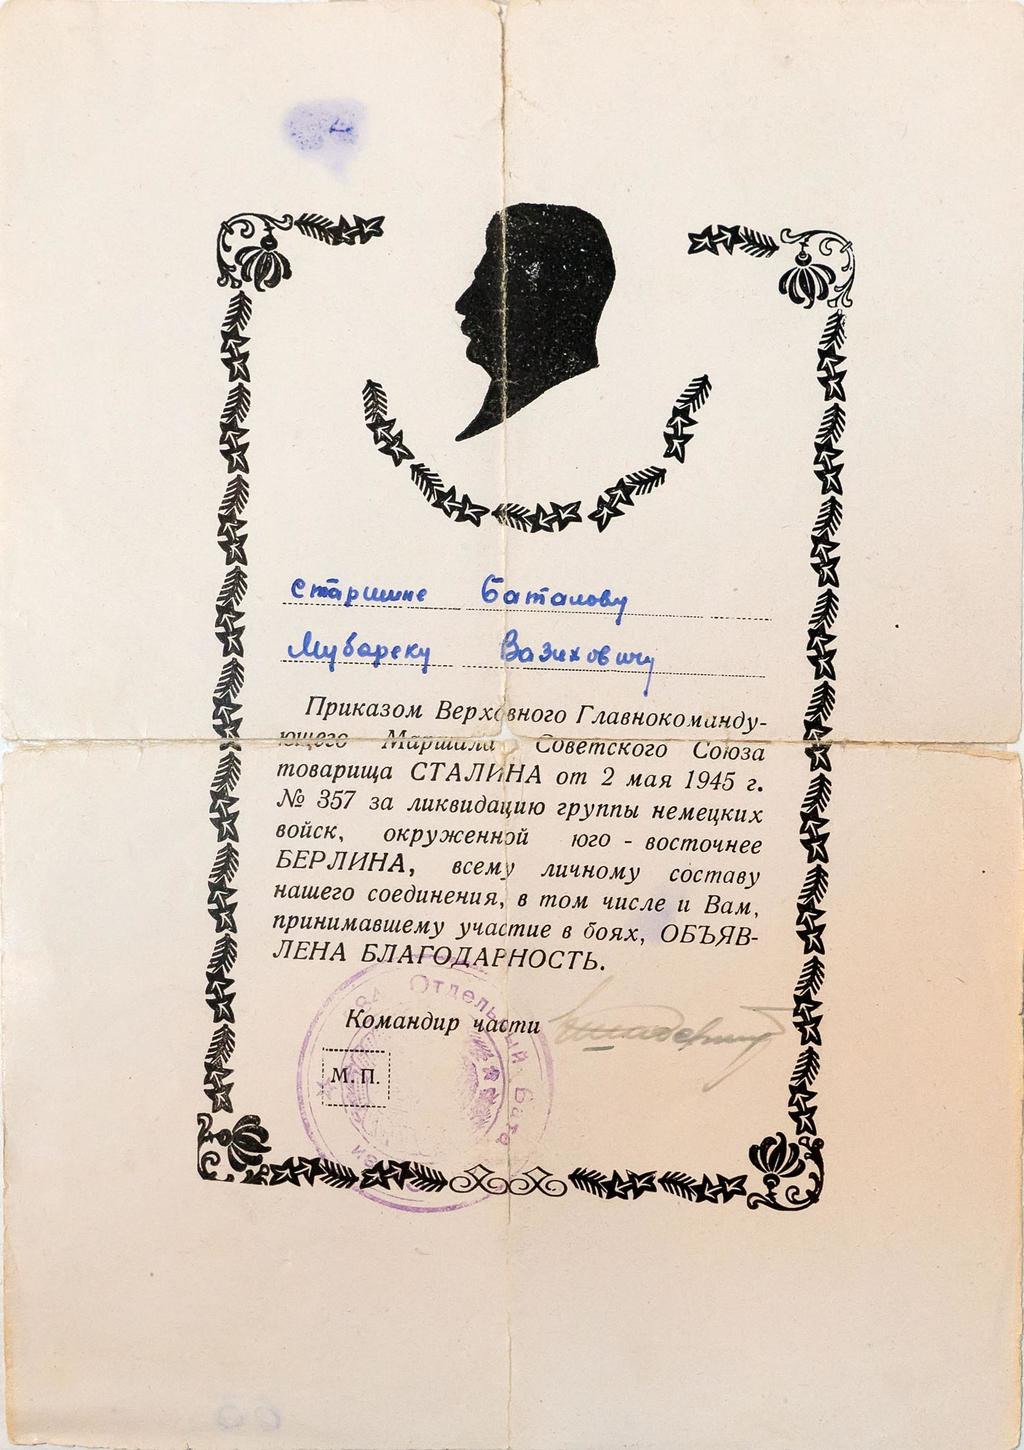 старшине Баталову
Мубареку Вазиховичу
Приказом Верховного Главнокоманду-
ющего Маршала Советского Союза
товарища СТАЛИНА от 2 мая 1945 г.
№ 357 за ликвидацию группы немецких
войск, окруженной юго - восточнее
БЕРЛИНА, всему личному составу
нашего соединения, в том числе и Вам,
принимавшему участие в боях, ОБЪЯВ-
ЛЕНА БЛАГОДАРНОСТЬ.
Командир части
М. П.
Отдельный